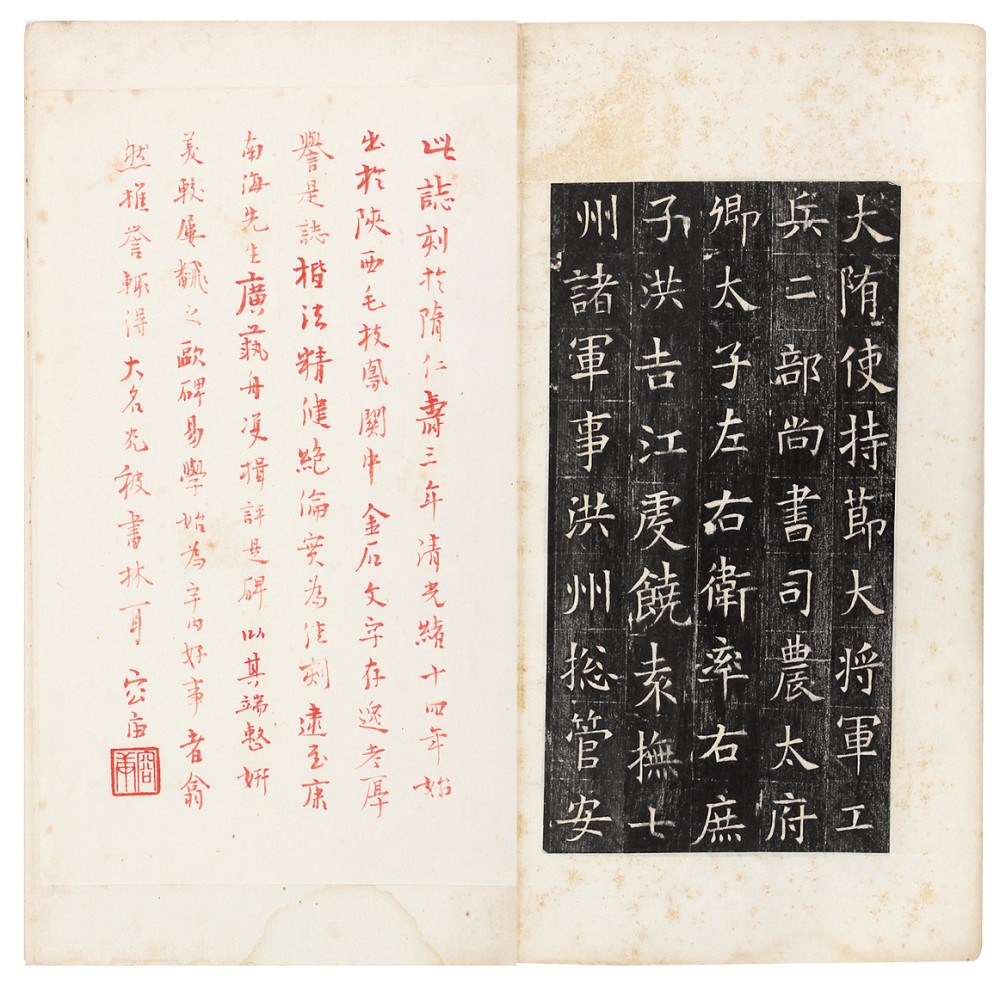 大隋使持莭大將軍工
兵二部尚書司農太府
卿太子左右衛率右庶
子洪吉江虔饒袁撫七
州諸軍事洪州捴管安
此誌刻於隋仁壽三年清光緒十四年始
出於陝西毛枝鳳關中金石文字存逸考厚
譽是誌楷法精健絕倫實為佳刻逮至康
南海先生廣藝舟雙楫評是碑以其端整妍
美較虞 之歐碑易學始為宇内好事者翕
然推誉輒得大名光被書林耳 容庙
容庙